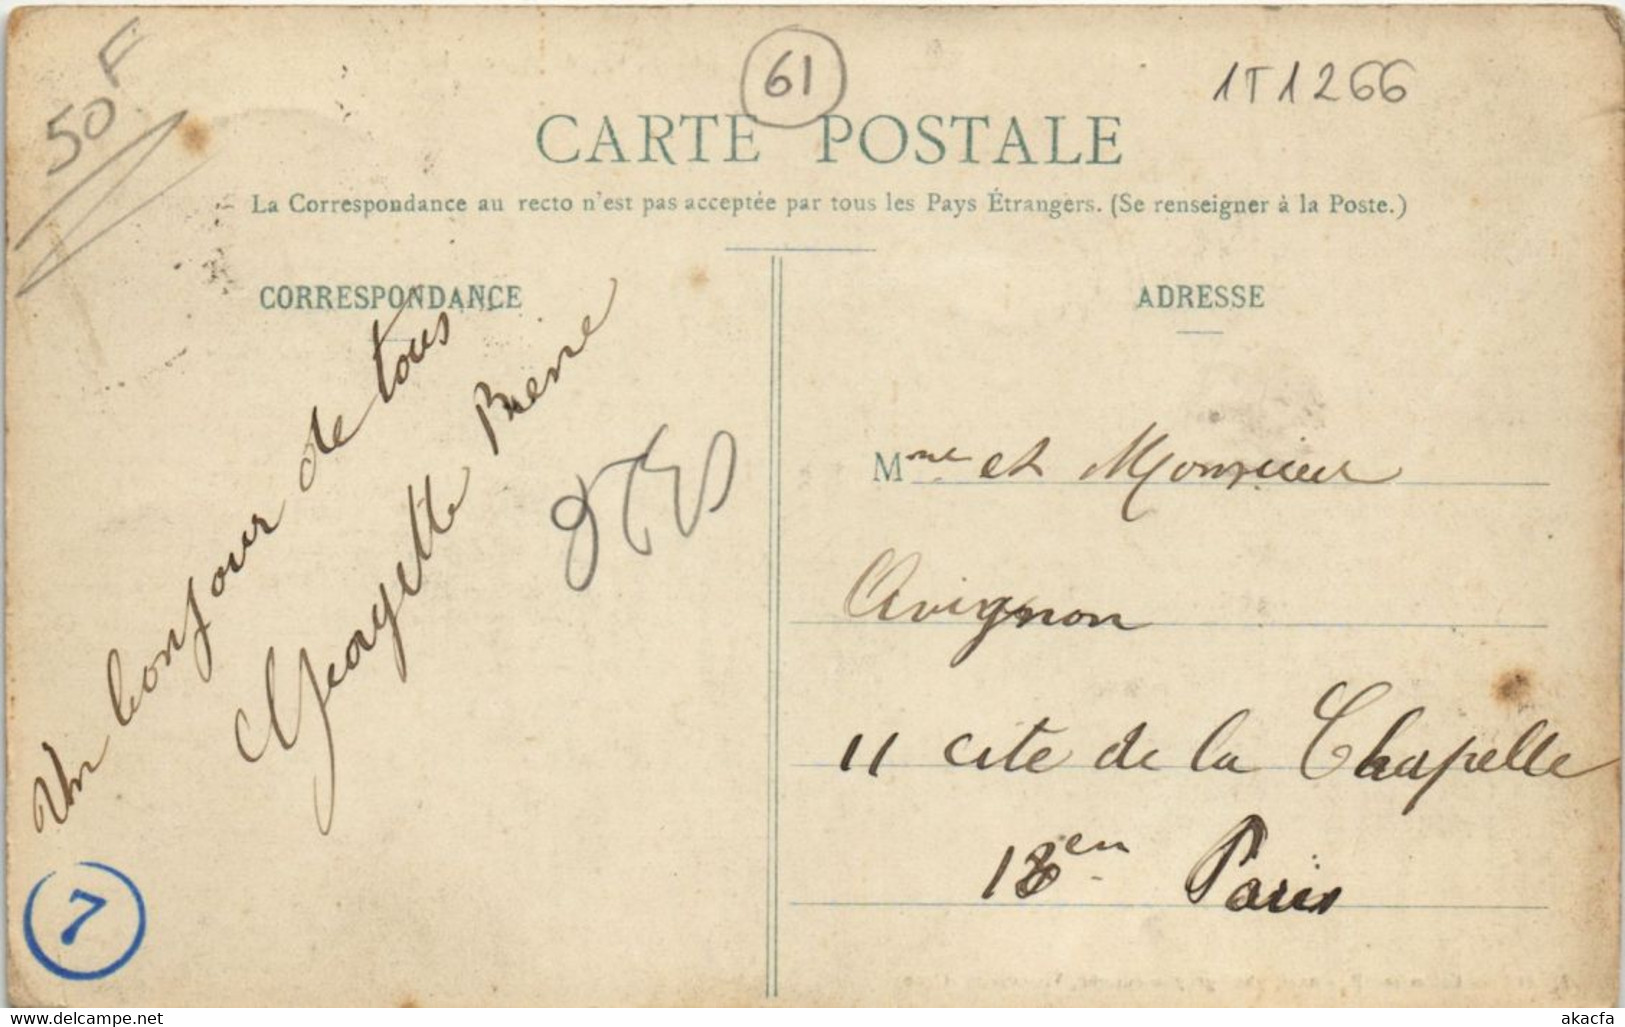 50F
61
1T1266
CARTE POSTALE
La Correspondance au recto n'est pas acceptée par tous les Pays Étrangers. (Se renseigner à la Poste.)
CORRESPONDANCE
Un bonjour de tous
Georgette
7
ADRESSE
Mme et Monsieur
Avignon
11 cite de la Chapelle
18en Paris
akacfa